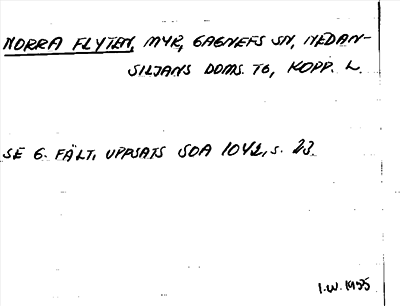 NORRA FLYTEN, MYR, GAGNEFS SN, NEDAN-
SILJANS DOMS. TG, KOPP. L.
SE G. FÄLT, UPPSATS SOA 1042, s. 23.
I.W. 1955